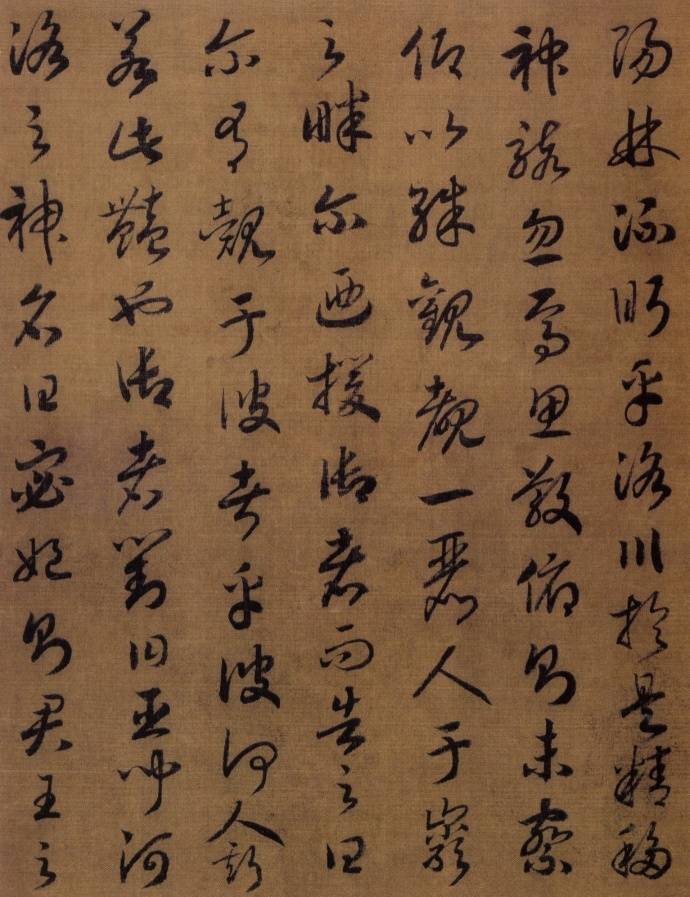 陽林流眄乎洛川於是精移
神駭忽焉思散俯則未察
仰以殊觀覩一麗人于巖
之畔尔迺援御者而告之曰
尔有覿于彼者乎彼何人斯
若此豔也御者對曰臣聞河
洛之神名曰宓妃則君王之